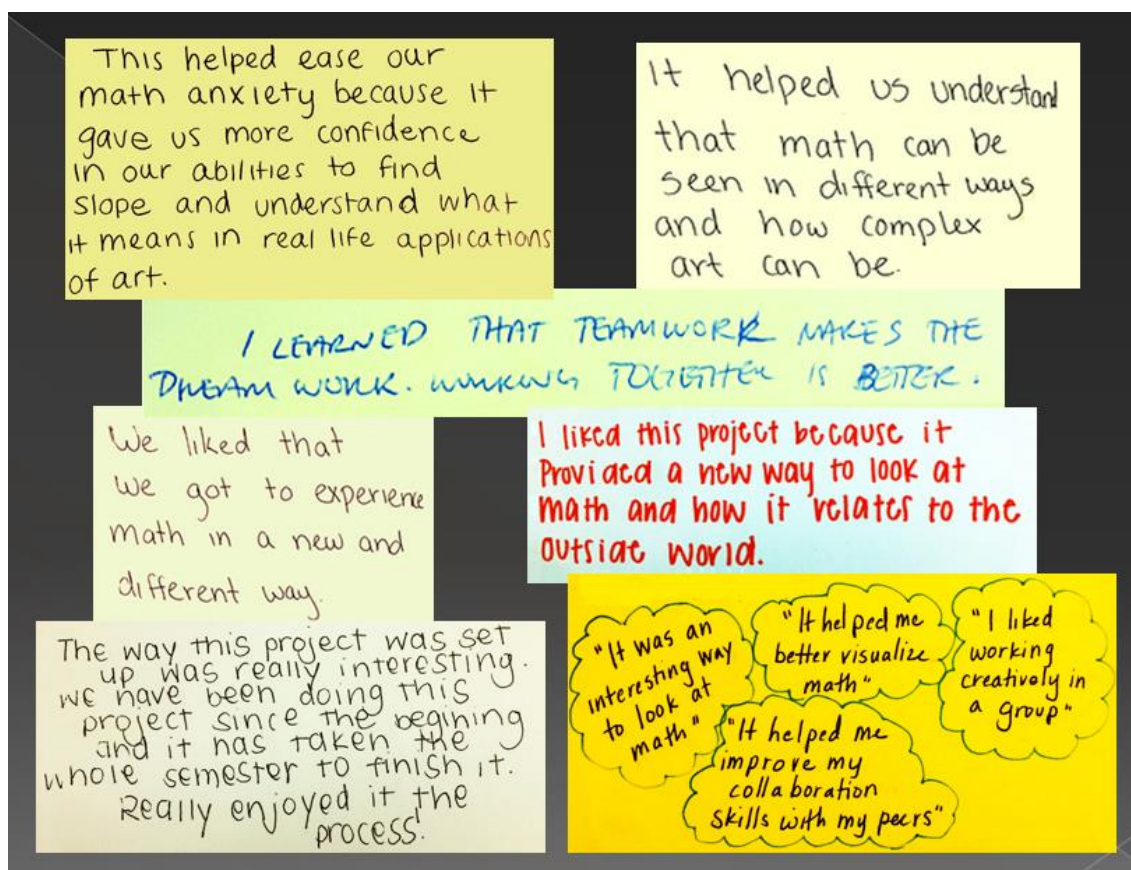 This helped ease our
math anxiety because it
gave us more confidence
in our abilities to find
slope and understand what
it means in real life applications
of art.
It helped us understand
that math can be
seen in different ways
and how complex
art can be.
I LEARNED THAT TEAMWORK MAKES THE
DREAM WORK. WORKING TOGETHER IS BETTER.
We liked that
we got to experience
math in a new and
different way.
I liked this project because it
Provided a new way to look at
math and how it relates to the
outside world.
The way this project was set
up was really interesting.
we have been doing this
project since the begining
and it has taken the
whole semester to finish it.
Really enjoyed it the
process!
"It was an
interesting way
to look at
math"
"It helped me
better visualize
math"
"I liked
working
creatively in
a group"
"It helped me
improve my
collaboration
skills with my peers"